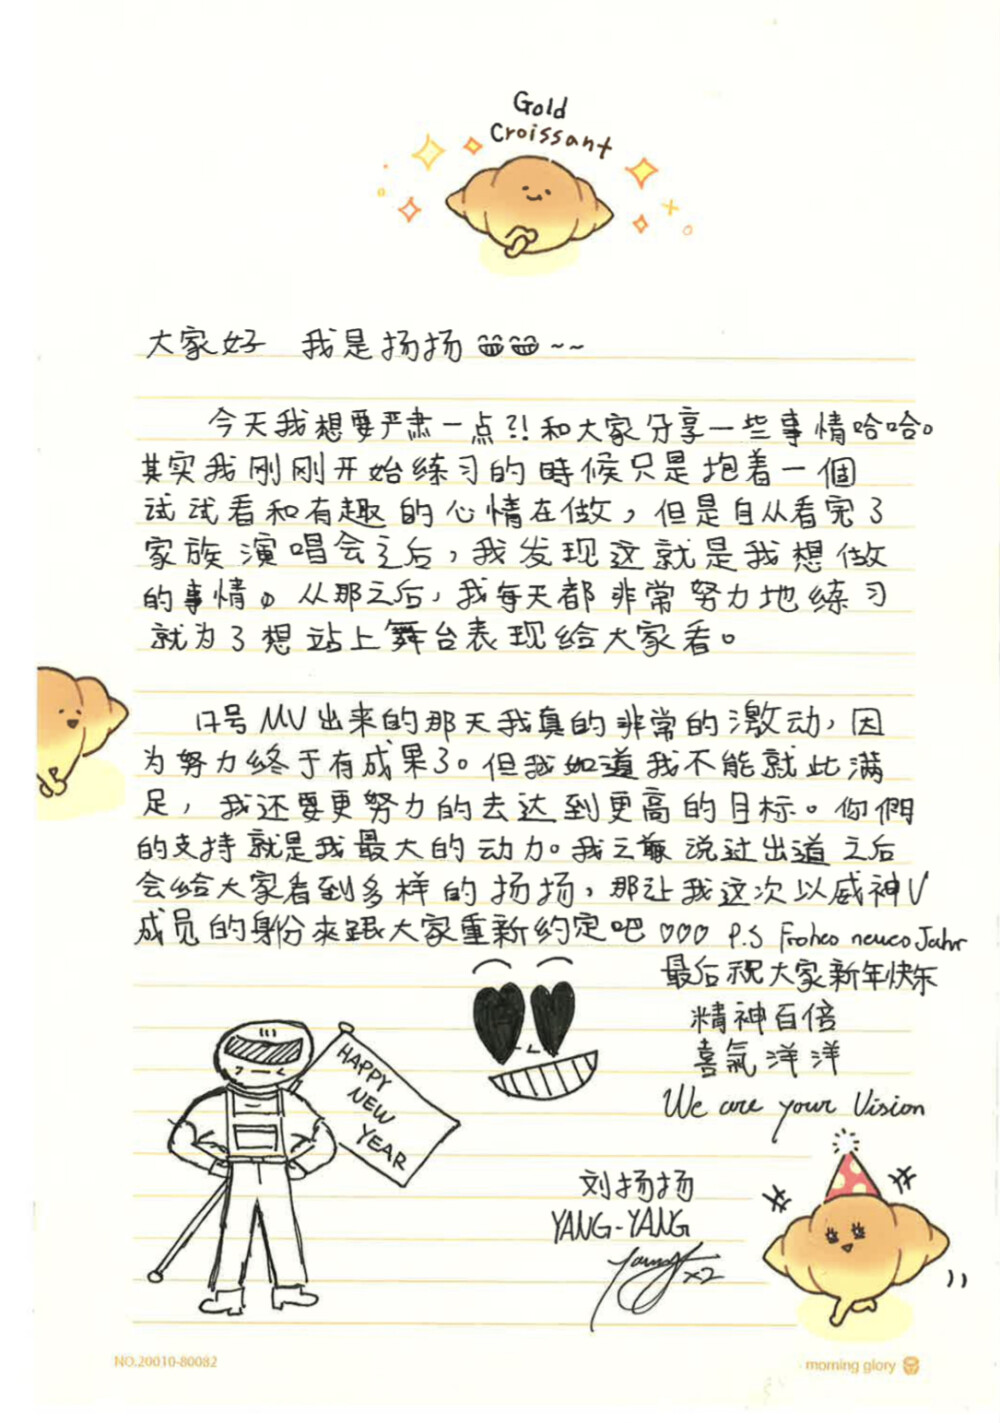 Gold
Croissant
大家好 我是扬扬 ~~
今天我想要严肃一点?!和大家分享一些事情哈哈。
其实我刚刚开始练习的時候只是抱着一個
试试看和有趣的心情在做，但是自从看完了
家族演唱会之后，我发现这就是我想做
的事情。从那之后，我每天都非常努力地练习
就为了想站上舞台表现给大家看。
17号MV出来的那天我真的非常的激动，因
为努力终于有成果了。但我知道我不能就此满
足，我还要更努力的去达到更高的目标。你們
的支持就是我最大的动力。我之前说过出道之后
会给大家看到多样的扬扬，那让我这次以威神V
成员的身份来跟大家重新约定吧 ♡♡♡ P.S Frohes neues Jahr
最后祝大家新年快乐
精神百倍
喜氣洋洋
We are your Vision
HAPPY
NEW
YEAR
刘扬扬
YANG-YANG
x2
NO.20010-80082
morning glory